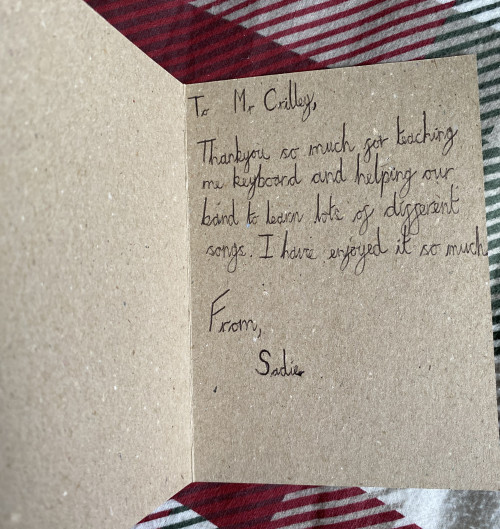 To Mr Crilley,
Thankyou so much for teaching
me keyboard and helping our
band to learn lots of different
songs. I have enjoyed it so much
From,
Sadie